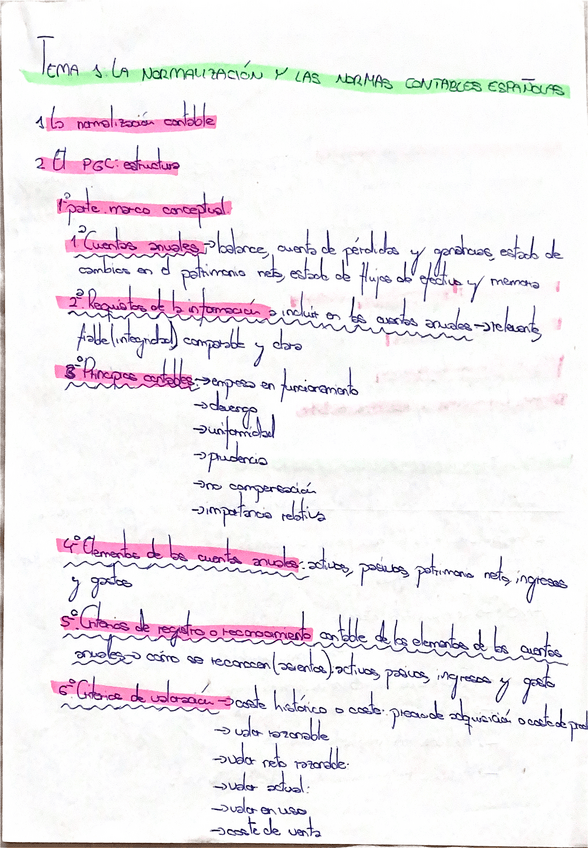 TEMA 1. LA NORMALIZACIÓN Y LAS NORMAS CONTABLES ESPAÑOLAS
1 La normalización contable
2 El PGC: estructura
1º parte marco conceptual
1º Cuentas anuales → balance, cuenta de pérdidas y ganancias, estado de
cambios en el patrimonio neto, estado de flujos de efectivo y memoria
2º Requisitos de la información a incluir en las cuentas anuales → relevante,
fiable (integridad) comparable y clara
3º Principios contables: → empresa en funcionamiento
→ devengo
→ uniformidad
→ prudencia
→ no compensación
→ importancia relativa
4º Elementos de las cuentas anuales: activos, pasivos, patrimonio neto, ingresos
y gastos
5º Criterios de registro o reconocimiento contable de los elementos de las cuentas
anuales → cómo se reconocen (asientos): activos, pasivos, ingresos y gasto
6º Criterios de valoración → coste histórico o coste: precio de adquisición o coste de prod
→ valor razonable
→ valor neto razonable:
→ valor actual:
→ valor en uso
→ coste de venta